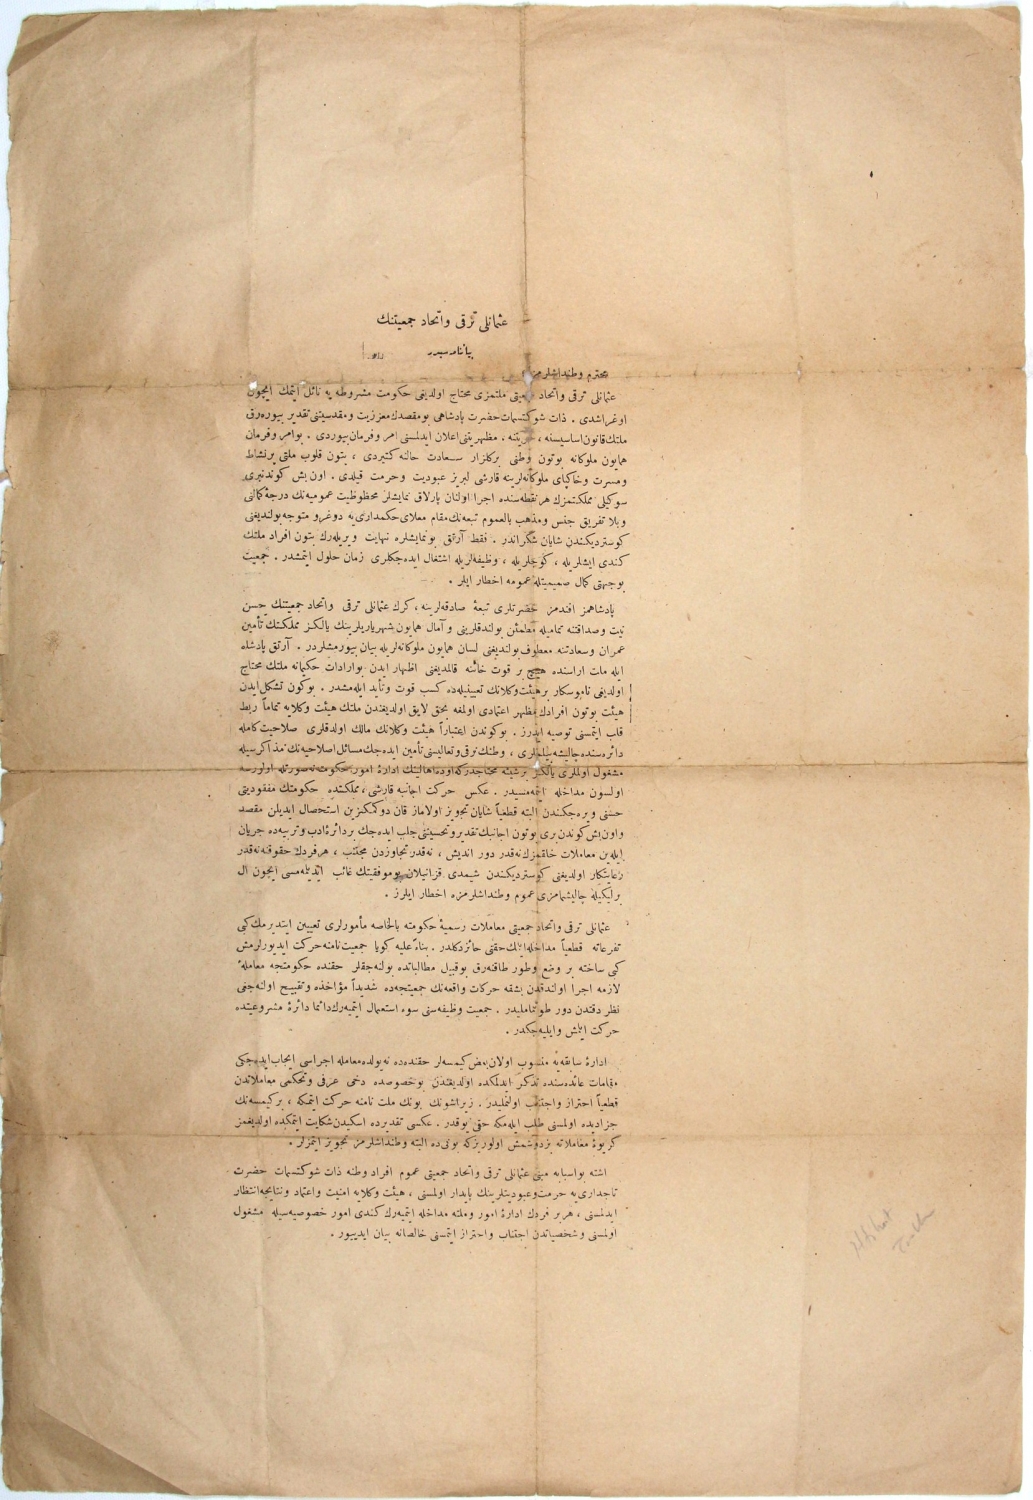 عثمانلى ترقى واتحاد جمعيتنك
بياننامه سيدر
محترم وطنداشلرمز
عثمانلى ترقى واتحاد جمعيتى ملتمزى محتاج اولديغى حكومت مشروطه يه نائل ايتمك ايچون
اوغراشدى . ذات شوكتسمات حضرت پادشاهى بو مقصدك معززيت و مقدسيتنى تقدير بيوره رق
ملتك قانون اساسيسنه ، حريتنه ، مظهريتنى اعلان ايدلمسنى امر وفرمان بيوردى . بو امر وفرمان
همايون ملوكانه بوتون وطنى بر كلزار سعادت حالنه كتيردى ، بتون قلوب ملتى پر نشاط
ومسرت و خاكپاى ملوكانه لرينه قارشى لبريز عبوديت وحرمت قيلدى . اون بش كوندنبرى
سوكيلى مملكتمزك هر نقطه سنده اجرا اولنان پارلاق نمايشلر محظوظيت عموميه نك درجۀ كمالنى
وبلا تفريق جنس ومذهب بالعموم تبعه نك مقام معلاى حكمدارى يه دوغرو متوجه بولنديغنى
كوسترديكندن شايان شكراندر . فقط آرتق بو نمايشلره نهايت ويريله رك بتون افراد ملتك
كندى ايشلريله ، كوجلريله ، وظيفه لريله اشتغال ايده جكلرى زمان حلول ايتمشدر . جمعيت
بوجهتى كمال صميميتله عمومه اخطار ايلر .
پادشاهمز افندمز حضرتلرى تبعۀ صادقه لرينه ، كرك عثمانلى ترقى واتحاد جمعيتنك حسن
نيت وصداقتنه تماميله مطمئن بولندقلرينى و آمال همايون شهرياريلرينك يالكز مملكتك تأمين
عمران وسعادتنه معطوف بولنديغنى لسان همايون ملوكانه لريله بيان بيورمشلردر . آرتق پادشاه
ايله ملت اراسنده هيچ بر قوت خائنه قالمديغنى اظهار ايدن بو ارادات حكيمانه ملتك محتاج
اولديغى ناموسكار بر هيئت وكلانك تعيينيله ده كسب قوت وتأيد ايله مشدر . بوكون تشكل ايدن
هيئت بوتون افرادك مظهر اعتمادى اولمغه بحق لايق اولديغندن ملتك هيئت وكلايه تماماً ربط
قلب ايتمسنى توصيه ايدرز . بوكوندن اعتباراً هيئت وكلانك مالك اولدقلرى صلاحيت كامله
دائره سنده چاليشه بيلملرى ، وطنك ترقى وتعاليسنى تأمين ايده جك مسائل اصلاحيه نك مذاكره سيله
مشغول اولملرى يالكز بر شيئه محتاجدر كه اوده اهالينك ادارۀ امور حكومته نه صورتله اولورسه
اولسون مداخله ايتمه مسيدر . عكس حركت اجانبه قارشى ، مملكتده حكومتك مفقوديتى
حسنى ويره جكندن البته قطعياً شايان تجويز اولاماز قان دوكمكزين استحصال ايديلن مقصد
واون بش كوندن برى بوتون اجانبك تقدير وتحسيننى جلب ايده جك بر دائرۀ ادب وتربيه ده جريان
ايله ين معاملات خلقمزك نه قدر دور انديش ، نه قدر تجاوزدن مجتنب ، هر فردك حقوقنه نه قدر
رعايتكار اولديغنى كوسترديكندن شيمدى قزانيلان بو موفقيتك غائب ايديلمه مسى ايچون ال
برلكيله چاليشمامزى عموم وطنداشلرمزه اخطار ايلرز .
عثمانلى ترقى واتحاد جمعيتى معاملات رسميۀ حكومته بالخاصه مأمورلرى تعيين ايتديرمك كبى
تفرعاته قطعياً مداخله ايتمك حقنى حائز دكلدر . بناءً عليه كويا جمعيت نامنه حركت ايديورلرمش
كبى ساخته بر وضع وطور طاقنه رق بو قبيل مطالباتده بولنه جقلر حقنده حكومتجه معاملۀ
لازمه اجرا اولندقدن بشقه حركات واقعه نك جمعيتجه ده شديداً مؤاخذه وتقبيح اولنه جغى
نظر دقتدن دور طوتلماملیدر . جمعيت وظيفه سنى سوء استعمال ايتميه رك دائما دائرۀ مشروعيتده
حركت ايتمش وايليه جكدر .
ادارۀ سابقه يه منسوب اولان بعض كيمسه لر حقنده ده نه يولده معامله اجراسى ايجاب ايده جكى
مقامات عائده سنده تذكر ايدلمكده اولديغندن بو خصوصده دخى عرفى وتحكمى معاملاتدن
قطعياً احتراز واجتناب اولنمليدر . زيرا شونك بونك ملت نامنه حركت ايتمكه ، بر كيمسه نك
جزاديده اولمسنى طلب ايله مكه حقى يوقدر . عكسى تقديرده اسكيدن شكايت ايتمكده اولديغمز
كريوۀ معاملاته بز دوشمش اولورز كه بونى ده البته وطنداشلرمز تجويز ايتمزلر .
اشته بو اسبابه مبنى عثمانلى ترقى واتحاد جمعيتى عموم افراد وطنه ذات شوكتسمات حضرت
تاجدارى يه حرمت وعبوديتلرينك پايدار اولمسنى ، هيئت وكلايه امنيت واعتماد ونتايجه انتظار
ايدلمسنى ، هر بر فردك ادارۀ امور وملته مداخله ايتميه رك كندى امور خصوصيه سيله مشغول
اولمسنى وشخصياتدن اجتناب واحتراز ايتمسنى خالصانه بيان ايدييور .